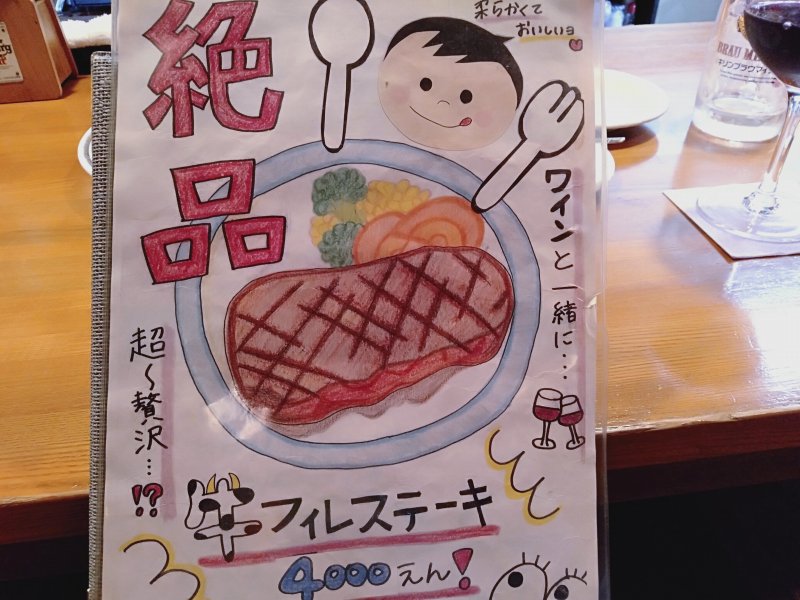 絶品
柔らかくて
おいしいヨ
ワインと一緒に…
超〜贅沢…!?
牛フィレステーキ
4000えん!
BRAU ME
キリンブラウマイ